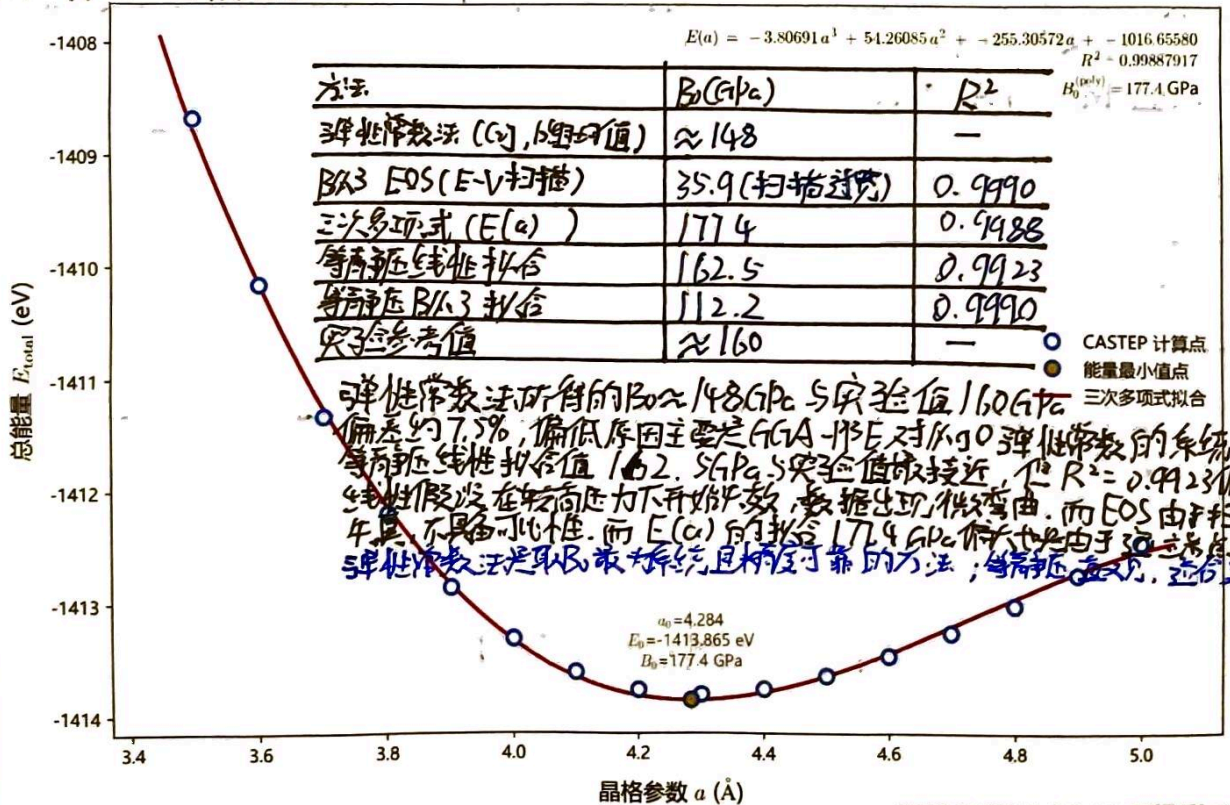 E(a) = -3.80691 a³ + 54.26085 a² + -255.30572 a + -1016.65580
R² = 0.99887917
B₀^(poly) = 177.4 GPa
方法 B₀(GPa) R²
弹性常数法 (Cij, 均值) ≈148 —
B-M3 EOS(E-V扫描) 35.9(扫描过宽) 0.9990
三次多项式 (E(a)) 177.4 0.9988
等静压线性拟合 162.5 0.9923
等静压B-M3拟合 112.2 0.9990
实验参考值 ≈160 —
CASTEP 计算点
能量最小值点
三次多项式拟合
弹性常数法所得的B₀≈148GPa与实验值160GPa
偏差约7.5%,偏低原因主要是GGA-PBE对MgO弹性常数的系统
等静压线性拟合值 162.5GPa与实验值最接近,但R²=0.9923
线性假设在较高压力下开始失效,数据出现微弯曲.而EOS由于
失真,不具备可比性.而E(a)的拟合177.4GPa偏大也是由于
弹性常数法是取B₀最为系统且精度可靠的方法;等静压
a₀=4.284
E₀=-1413.865 eV
B₀=177.4 GPa
总能量 E_total (eV)
-1408
-1409
-1410
-1411
-1412
-1413
-1414
3.4 3.6 3.8 4.0 4.2 4.4 4.6 4.8 5.0
晶格参数 a (Å)